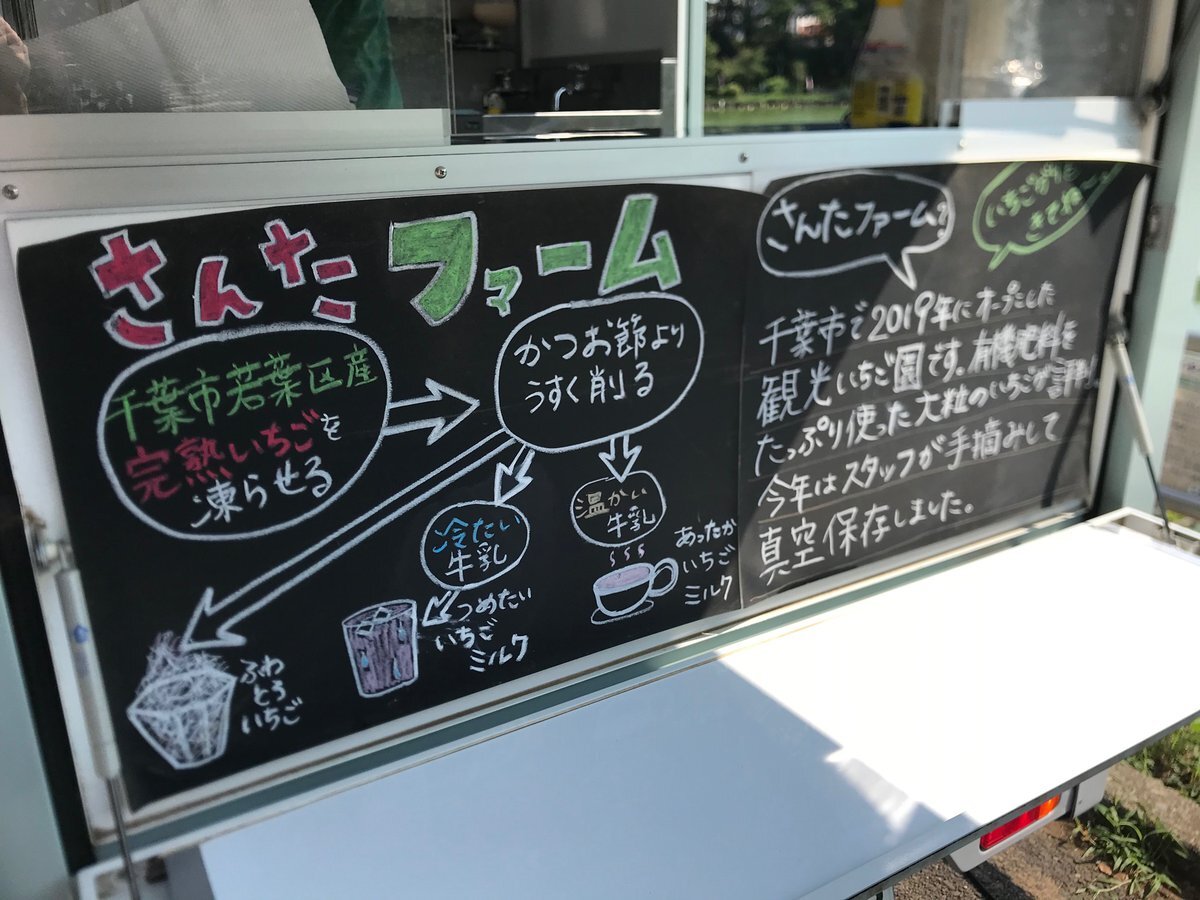 さんたファーム
千葉市若葉区産
完熟いちごを
凍らせる
かつお節より
うすく削る
冷たい
牛乳
温かい
牛乳
ふわ
とろ
いちご
つめたい
いちご
ミルク
あったか
いちご
ミルク
さんたファーム?
いちご狩りに
きてね〜
千葉市で2019年にオープンした
観光いちご園です。有機肥料を
たっぷり使った大粒のいちごが評判
今年はスタッフが手摘みして
真空保存しました。